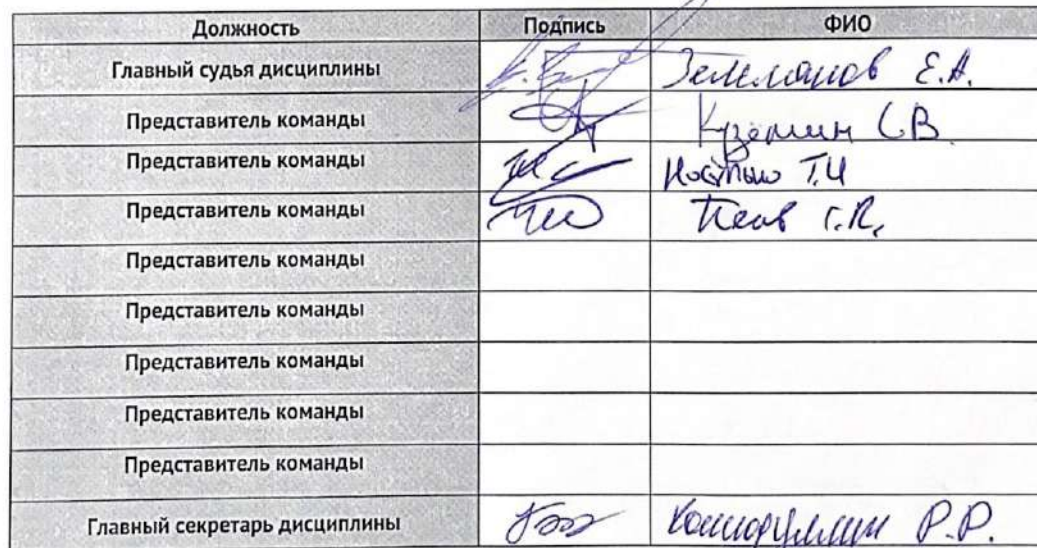 Должность Подпись ФИО
Главный судья дисциплины Е.А.
Представитель команды С.В.
Представитель команды Т.Ч
Представитель команды
Представитель команды
Представитель команды
Представитель команды
Представитель команды
Представитель команды
Главный секретарь дисциплины Р.Р.